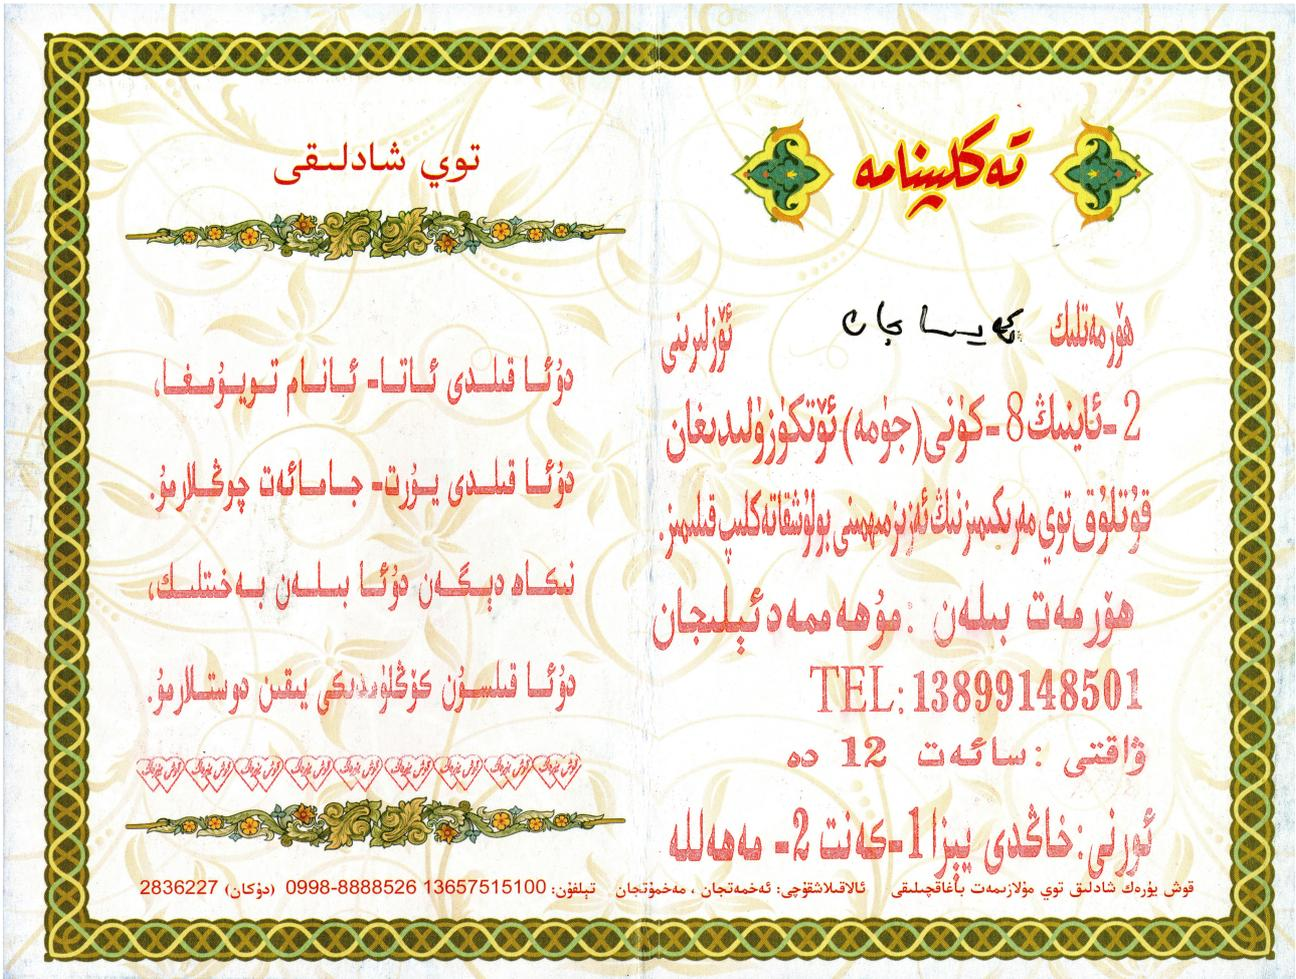 تەكلىپنامە
ھۆرمەتلىك ئەيسا جان ئۆزلىرىنى
2-ئاينىڭ 8-كۈنى (جۈمە) ئۆتكۈزۈلىدىغان
قۇتلۇق توي مەرىكىمىزنىڭ ئەزىز مىھمىنى بولۇشقا تەكلىپ قىلىمىز.
ھۆرمەت بىلەن: مۇھەممەد ئېلىجان
TEL: 13899148501
ۋاقتى: سائەت 12 دە
ئورنى: خاڭدى يېزا 1-كەنت 2- مەھەللە
توي شادلىقى
دۇئا قىلدى ئاتا- ئانام تويۇمغا،
دۇئا قىلدى يۇرت- جامائەت چوڭلارمۇ.
نىكاھ دېگەن دۇئا بىلەن بەختلىك،
دۇئا قىلسۇن كۆڭلۈمدىكى يىقىن دوستلارمۇ.
قوش يۈرەك قوش يۈرەك قوش يۈرەك قوش يۈرەك قوش يۈرەك قوش يۈرەك قوش يۈرەك قوش يۈرەك قوش يۈرەك
قوش يۈرەك شادلىق توي مۇلازىمەت باغاقچىلىقى ئالاقىلاشقۇچى: ئەخمەتجان ، مەخمۇتجان تېلفۇن: 13657515100 0998-8888526 (دۇكان) 2836227